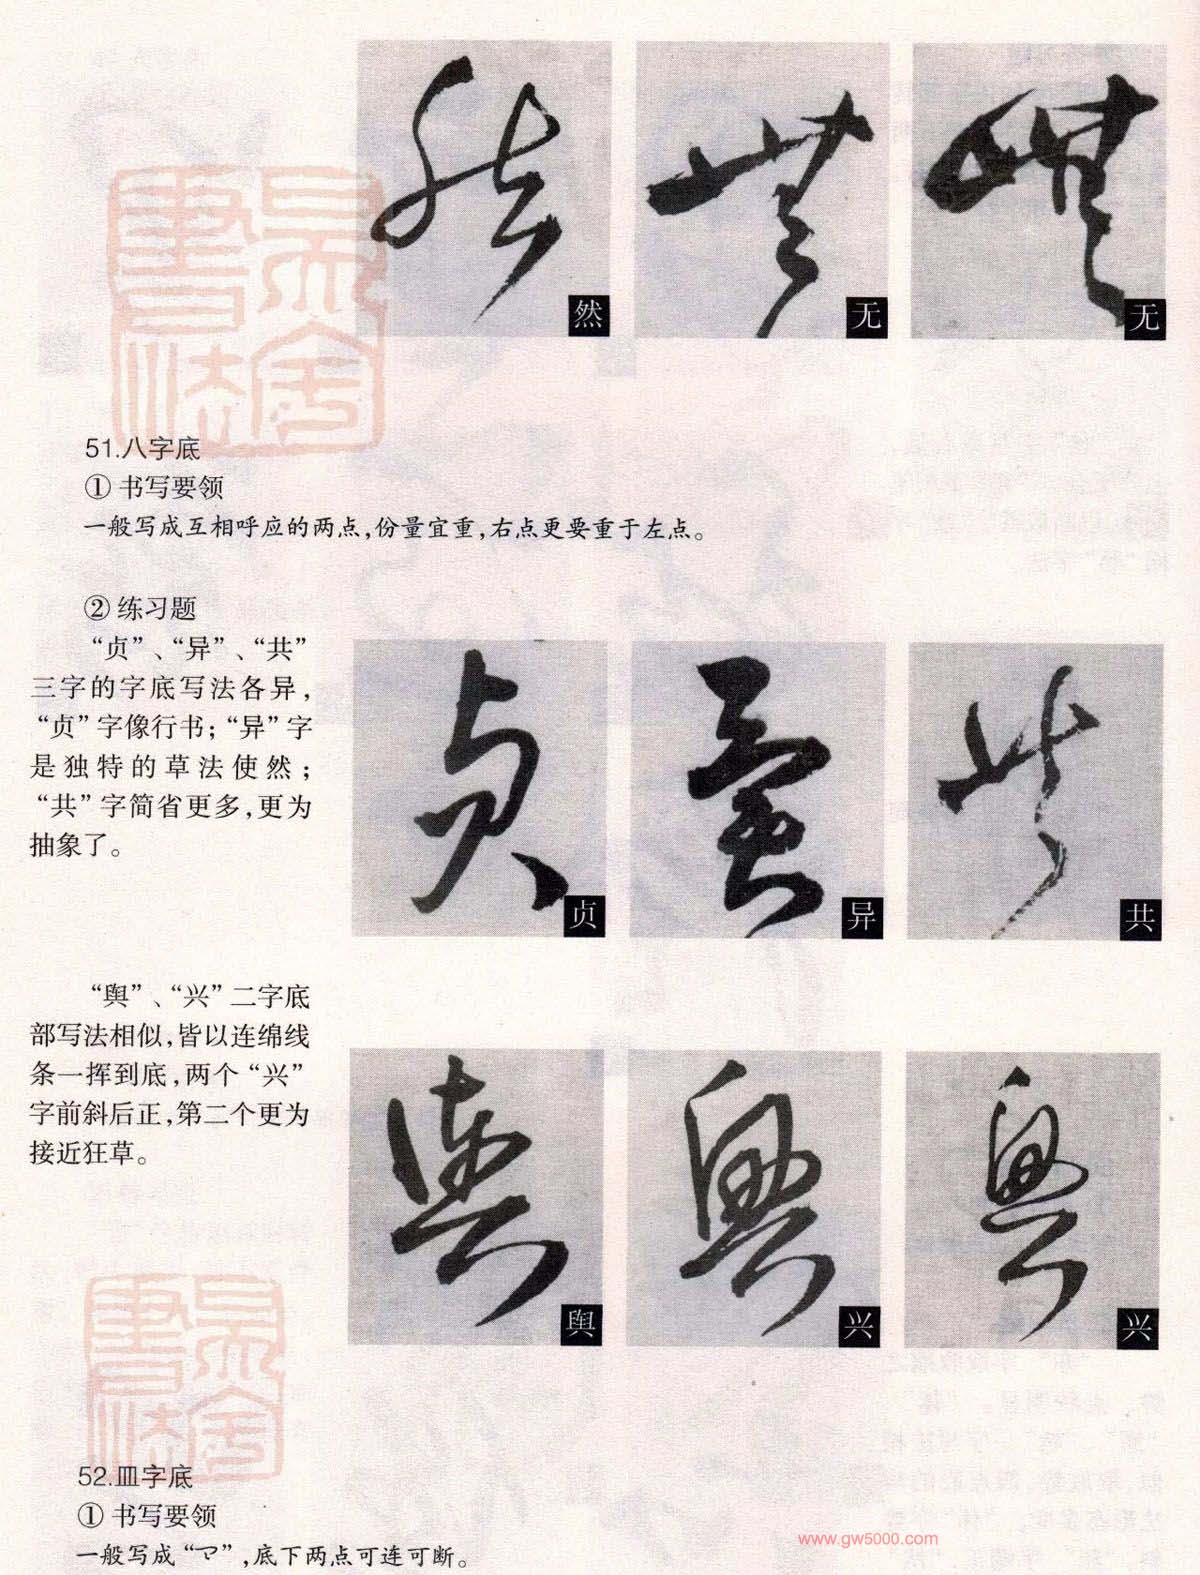 然
无
无
51.八字底
① 书写要领
一般写成互相呼应的两点,份量宜重,右点更要重于左点。
② 练习题
“贞”、“异”、“共”
三字的字底写法各异,
“贞”字像行书;“异”字
是独特的草法使然;
“共”字简省更多,更为
抽象了。
贞
异
共
“舆”、“兴”二字底
部写法相似,皆以连绵线
条一挥到底,两个“兴”
字前斜后正,第二个更为
接近狂草。
舆
兴
兴
52.皿字底
① 书写要领
一般写成“”,底下两点可连可断。
www.gw5000.com